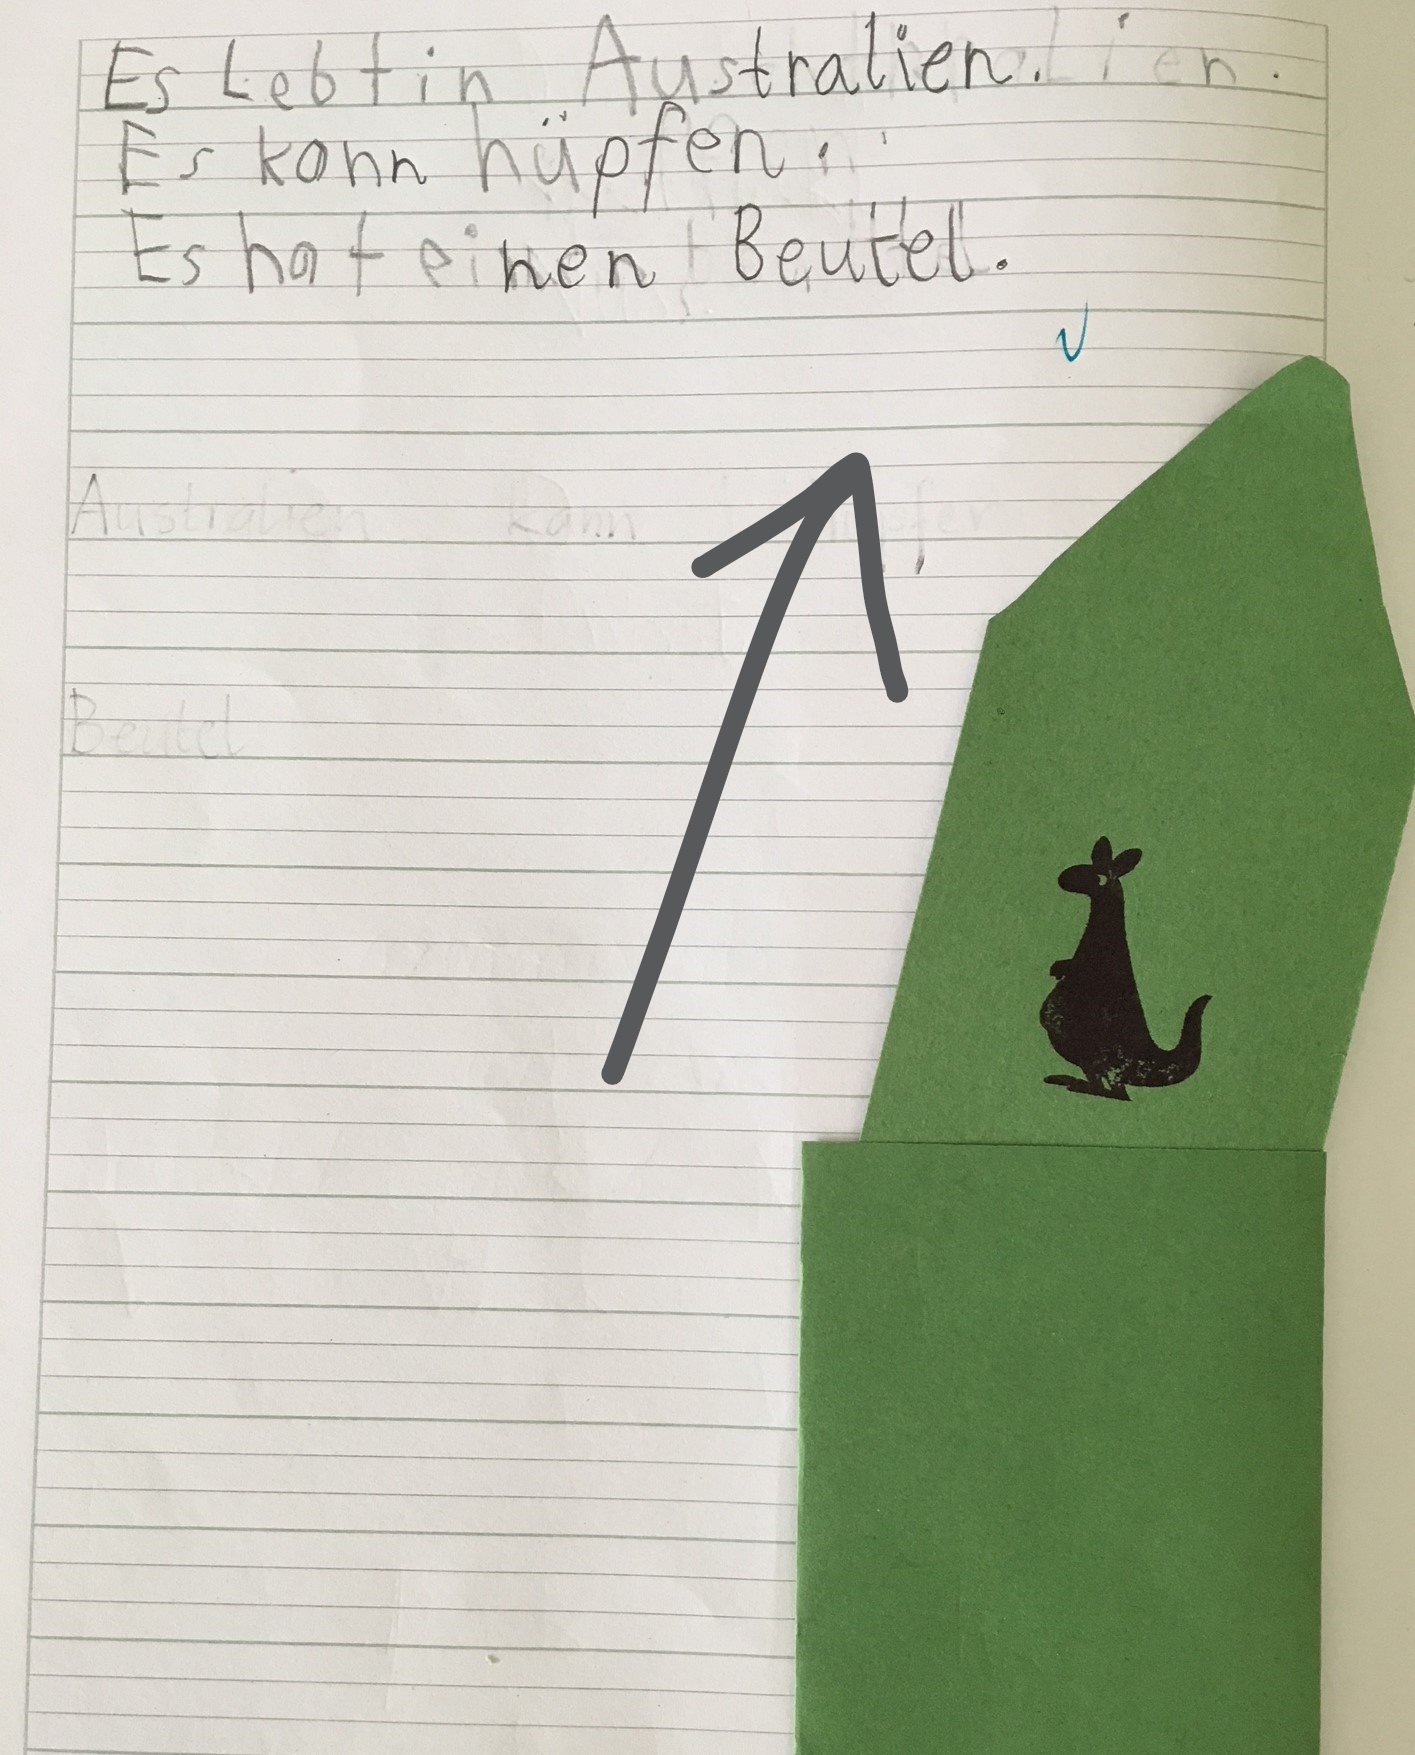 Es Lebt in Australien.
Es kann hüpfen.
Es hat einen Beutel.
Australien kann
Beutel